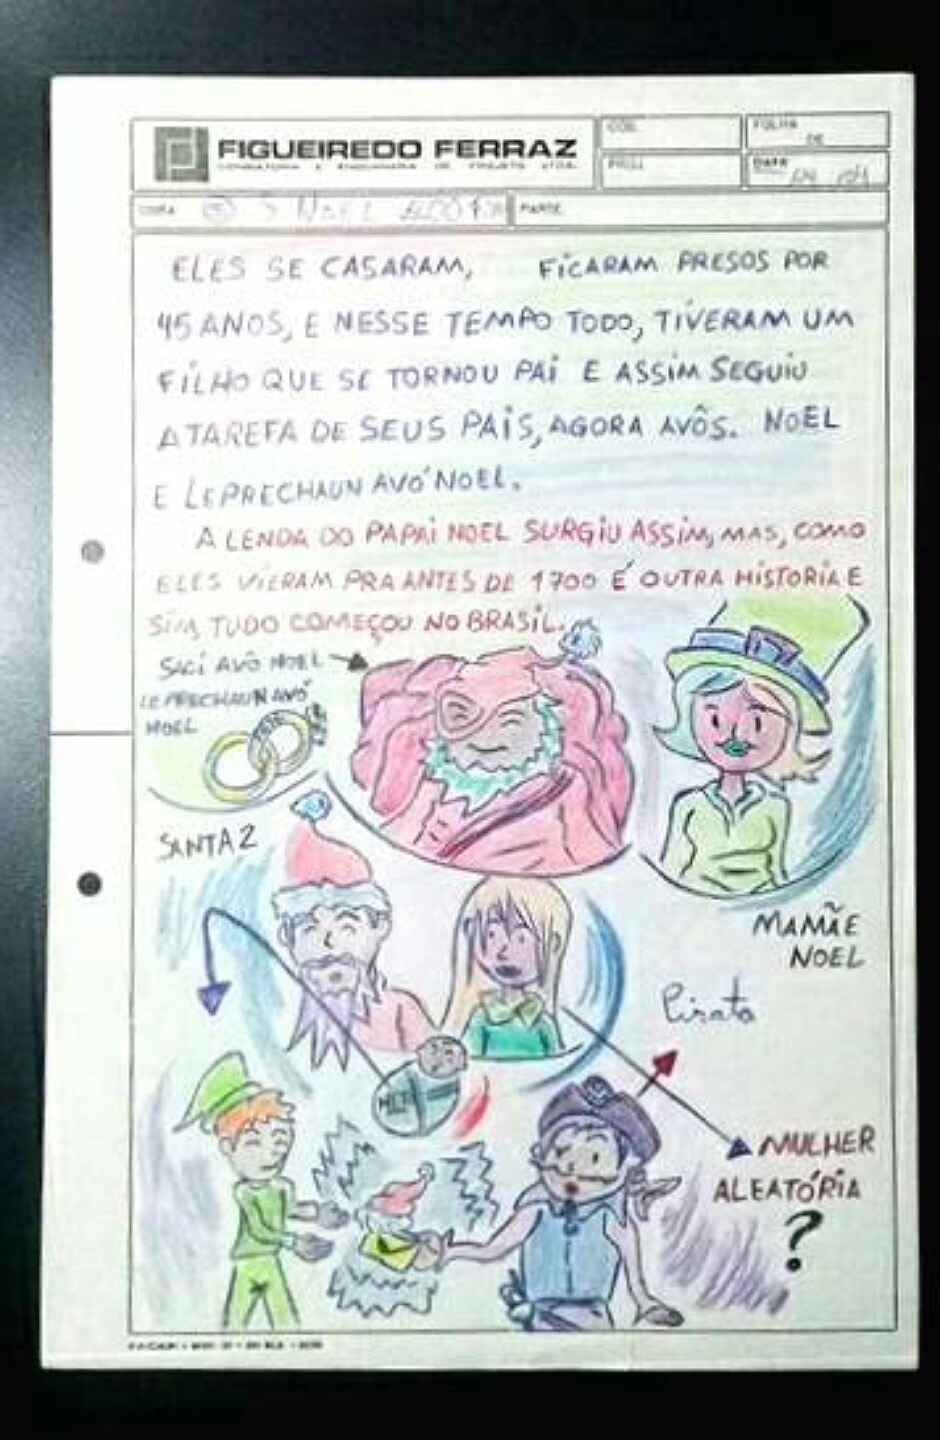 FIGUEIREDO FERRAZ
CONSULTORIA E ENGENHARIA DE PROJETO LTDA.
FOLHA
DE
DATA
NOEL
PARTE
ELES SE CASARAM, FICARAM PRESOS POR
45 ANOS, E NESSE TEMPO TODO, TIVERAM UM
FILHO QUE SE TORNOU PAI E ASSIM SEGUIU
A TAREFA DE SEUS PAIS, AGORA AVÔS. NOEL
E LEPRECHAUN AVÓ NOEL.
A LENDA DO PAPAI NOEL SURGIU ASSIM, MAS, COMO
ELES VIERAM PRA ANTES DE 1700 É OUTRA HISTORIA E
SIM, TUDO COMEÇOU NO BRASIL.
SACI AVÔ NOEL
LEPRECHAUN AVÓ
NOEL
SANTA 2
MAMÃE
NOEL
Pirata
MULHER
ALEATÓRIA
?